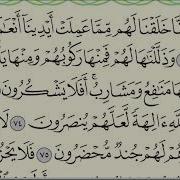 نَّا خَلَقْنَا لَهُم مِّمَّا عَمِلَتْ أَيْدِينَا أَنْعَـ
وَذَلَّلْنَٰهَا لَهُمْ فَمِنْهَا رَكُوبُهُمْ وَمِنْهَا يَـ
ـهَا مَنَٰفِعُ وَمَشَارِبُ ۖ أَفَلَا يَشْكُرُونَ
للَّهِ ءَالِهَةً لَّعَلَّهُمْ يُنصَرُونَ ٧٤
هُمْ لَهُمْ جُندٌ مُّحْضَرُونَ ٧٥ فَلَا يَحْزُ